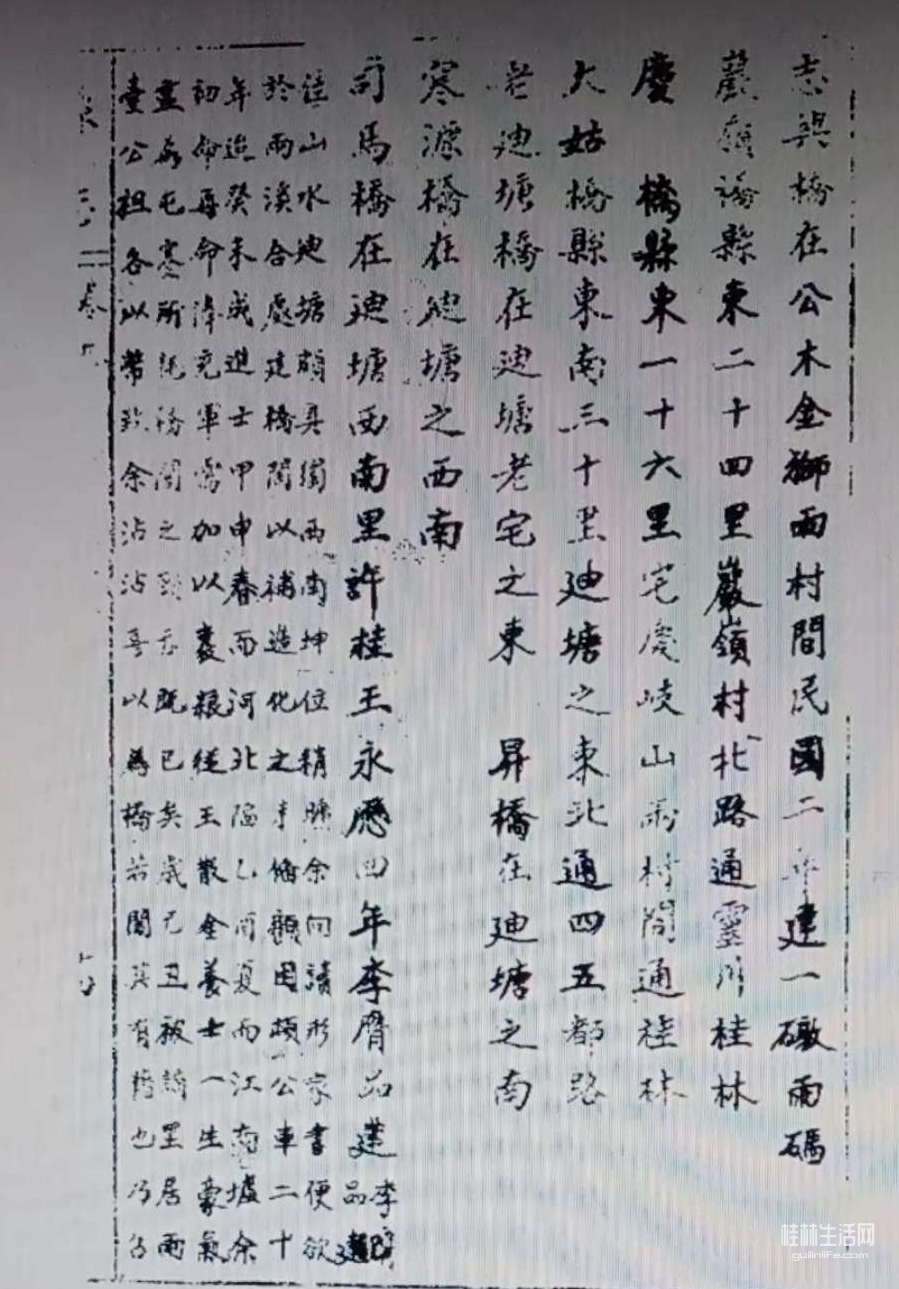 志與橋在公木金獅兩村間民國二年建一礅兩碼
巖嶺橋縣東二十四里巖嶺村北路通靈川桂林
慶 橋縣東一十六里宅慶岐山兩村間通桂林
大姑橋縣東南三十里廸塘之東北通四五都路
老廸塘橋在廸塘老宅之東 昇橋在廸塘之南
寒源橋在廸塘之西南
司馬橋在廸塘西南里許桂王永歷四年李膺品建 李膺品
佳山水廸塘頗具獨西南坤位稍缺余向讀形家書便欲
於兩溪合處建橋閣以補造化之手脩顧困頓公車二十
年迨癸未成進士甲申春而河北陷乙酉夏而江南墟余
初命再命洊充軍需加以裹粮從王散金養士一生豪氣
盡為屯寒所耗橋閣之 既已矣歲己丑被謫里居兩
臺公祖各以幣致余沾沾喜以為橋若閣其有濟也乃召
卷
桂林生活网
guilinlife.com